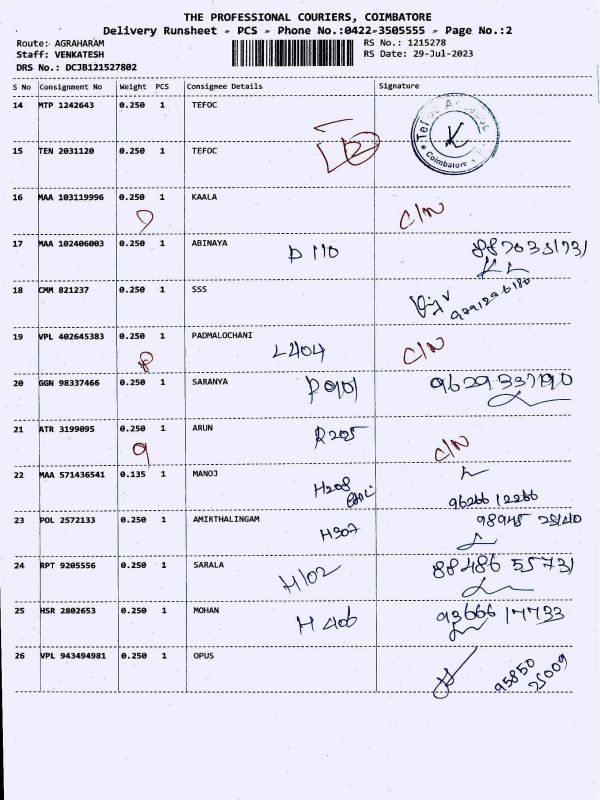 THE PROFESSIONAL COURIERS, COIMBATORE
Delivery Runsheet - PCS - Phone No.:0422-3505555 - Page No.:2
Route: AGRAHARAM RS No.: 1215278
Staff: VENKATESH RS Date: 29-Jul-2023
DRS No.: DCJB121527802
S No Consignment No Weight PCS Consignee Details Signature
14 MTP 1242643 0.250 1 TEFOC
15 TEN 2031120 0.250 1 TEFOC
Coimbatore
16 MAA 103119996 0.250 1 KAALA C/N
17 MAA 102406003 0.250 1 ABINAYA D 110
18 CMM 821237 0.250 1 SSS
19 VPL 402645383 0.250 1 PADMALOCHANI L404 C/N
8
20 GGN 98337466 0.250 1 SARANYA
21 ATR 3199095 0.250 1 ARUN R205 C/N
9
22 MAA 571436541 0.135 1 MANOJ H208
96266 12266
23 POL 2572133 0.250 1 AMIRTHALINGAM H307
24 RPT 9205556 0.250 1 SARALA H102 88486 55731
25 HSR 2802653 0.250 1 MOHAN H 406 93666 17733
26 VPL 943494981 0.250 1 OPUS 95850
25009